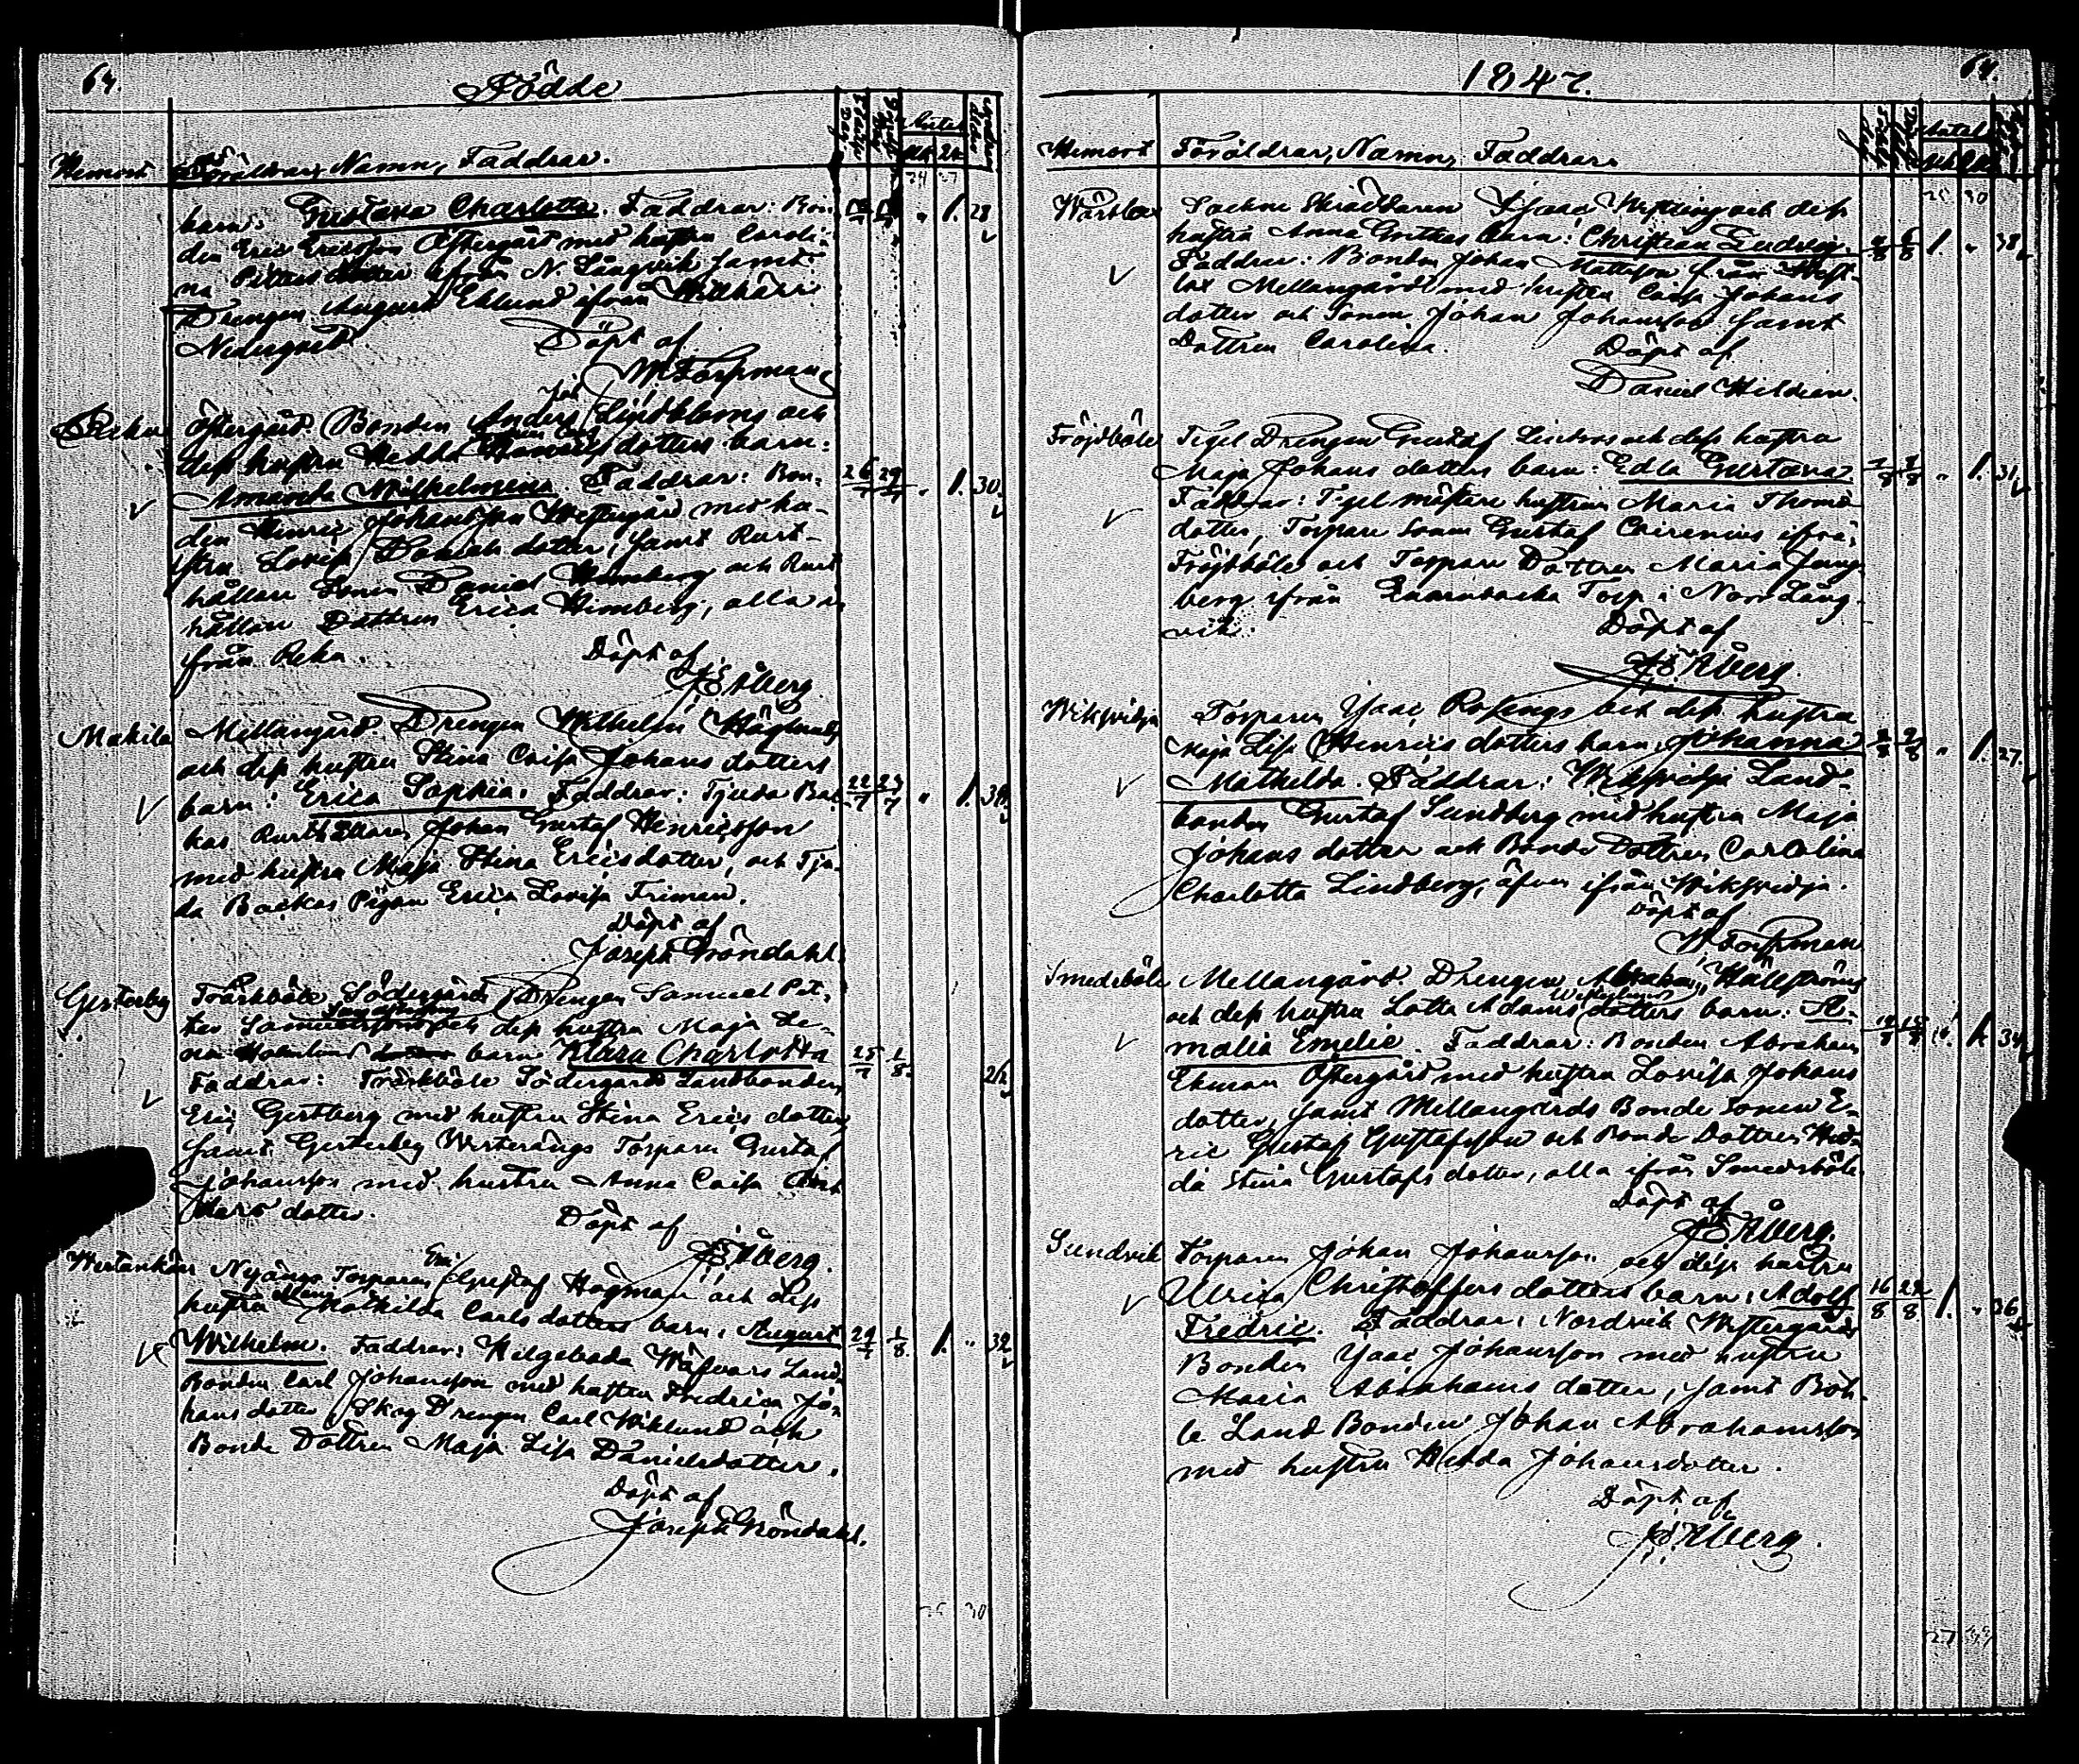 64.
Födde
Hemort Föräldrar, Namn, Faddrar.
barn: Gustava Charlotta. Faddrar: Bon-
den Eric Ericsson Östergård med hustru Caroli-
na Petters dotter ifrån N. Långvik samt
Drengen August Eklund ifrån Willkärr
Nedergård. Döpt af
W. Torpman
Reku Östergård. Bonden Anders Lindbloms och
dess hustru Hedda dotters barn:
Amanda Wilhelmina. Faddrar: Bon- 26/7 29/7 " 1. 30.
den Henric Johansson Westergård med hu-
stru Lovisa Daniels dotter, samt Rust-
hållare Sonen Daniel Himberg och Rust
hållare Dottren Erica Himberg, alla i-
från Reku. Döpt af
J E Åberg.
Makila Mellangård. Drengen Wilhelm Högmans
och dess hustru Stina Caisa Johans dotters
barn: Erica Sophia. Faddrar: Tjuda Bac- 22/7 27/7 " 1.
kas Rusthållaren Johan Gustaf Henricsson
med hustru Maja Stina Ericsdotter, och Tju-
da Backas Pigan Erica Lovisa Friman.
Döpt af
Joseph Gröndahl.
Gesterby Träskböle Södergårds Drengen Samuel Pet-
ters Samuelssons och dess hustru Maja Le-
na Holmlund barn Klara Charlotta 25/7 1/8 26.
Faddrar: Träskböle Södergårds Landbonden
Eric Gestberg med hustru Stina Erics dotter
samt Gesterby Westerängs Torparen Gustaf
Johansson med hustru Anna Caisa
dotter. Döpt af
J E Åberg.
Westankärr Nyängs Torparen Gustaf Högman och dess
hustru Mathilda Carls dotters barn: August 29/7 1/8 1. " 32
Wilhelm. Faddrar: Helgeboda Land-
Bonden Carl Johansson med hustru Fredrica Jo-
hans dotter, Skog Drengen Carl Wiklund och
Bonde Dottren Maja Lisa Danielsdotter.
Döpt af
Joseph Gröndahl.
1847. 64.
Hemort Föräldrar, Namn, Faddrar Antal
Wårtlax Sockne Skräddaren Isaac Westling och dess
hustru Anna Gretas barn: Christian Ludvig. 2/8 6/8 1. " 38.
Faddrar: Bonden Johan Mattsson från
lax Mellangård med hustru Caisa Johans
dotter och Sonen Johan Johansson samt
Dottren Carolina. Döpt af
Daniel Hildeen.
Fröjdböle Tegel Drengen Gustaf Lindroos och dess hustru
Maja Johans dotters barn: Edla Gustava " 1. 31.
Faddrar: Tegel mästare hustrun Maria Thomæ
dotter, Torpare Sonen Gustaf ifrån
Fröjdböle och Torpare Dottren Maria Ljung-
berg ifrån Qvarnbacka Torp i Norr Lång-
vik. Döpt af
J E Åberg.
Wiksvidja Torparen Isaac Rosengs och dess hustru
Maja Lisa Henrics dotters barn: Johanna " 1. 27.
Mathilda. Faddrar: Wiksvidja Land-
bonden Gustaf Sundberg med hustru Maja
Johans dotter och Bonde Dottren Carolina
Charlotta Lindberg, äfven ifrån Wiksvidja.
Döpt af
W Torpman
Smedsböle Mellangård. Drengen Abraham Hällströms
och dess hustru Lotta Adams dotters barn: A-
malia Emelie. Faddrar: Bonden Abraham 1. 34
Ekman Östergård med hustru Lovisa Johans
dotter, samt Mellangårds Bonde Sonen E-
ric Gustaf Gustafsson och Bonde Dottren Hed-
da Stina Gustafs dotter, alla ifrån Smedsböle
Döpt af
J E Åberg.
Sundvik Torparen Johan Johansson och dess hustru
Ulrica Christoffers dotters barn: Adolf 16/8 22/8 1. " 36
Fredric. Faddrar: Nordvik Westergårds
Bonden Isaac Johansson med hustru
Maria Abrahams dotter, samt Böh-
le Land Bonden Johan Abrahamsson
med hustru Hedda Johansdotter.
Döpt af
J E Åberg.